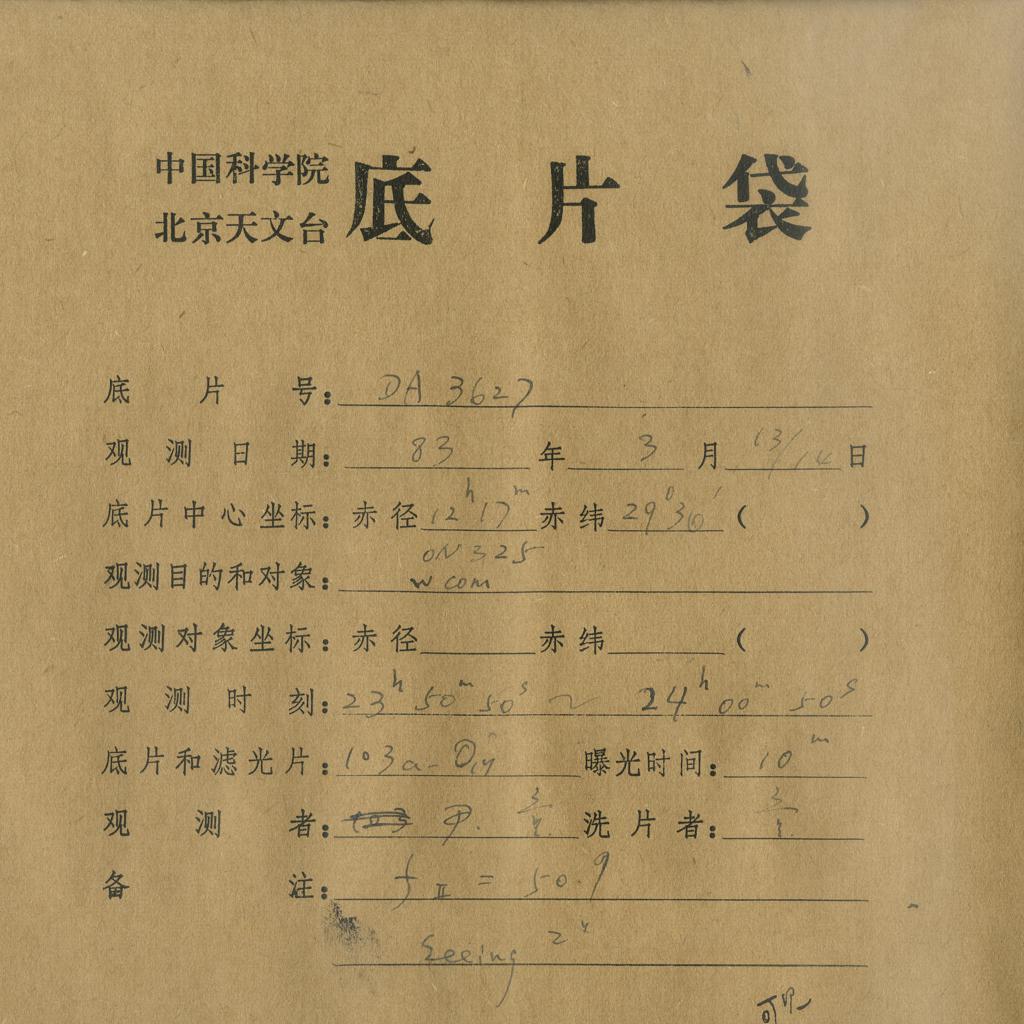 中国科学院
北京天文台
底片袋
底片号: DA 3627
观测日期: 83 年 3 月 13/14 日
底片中心坐标: 赤径 12ʰ17ᵐ 赤纬 29°30′ ( )
ON 325
观测目的和对象: w com
观测对象坐标: 赤径 赤纬 ( )
观测时刻: 23ʰ 50ᵐ 50ˢ ~ 24ʰ 00ᵐ 50ˢ
底片和滤光片: 103a-O 曝光时间: 10ᵐ
观测者: 洗片者:
备注: f II = 50.9
Seeing 2″